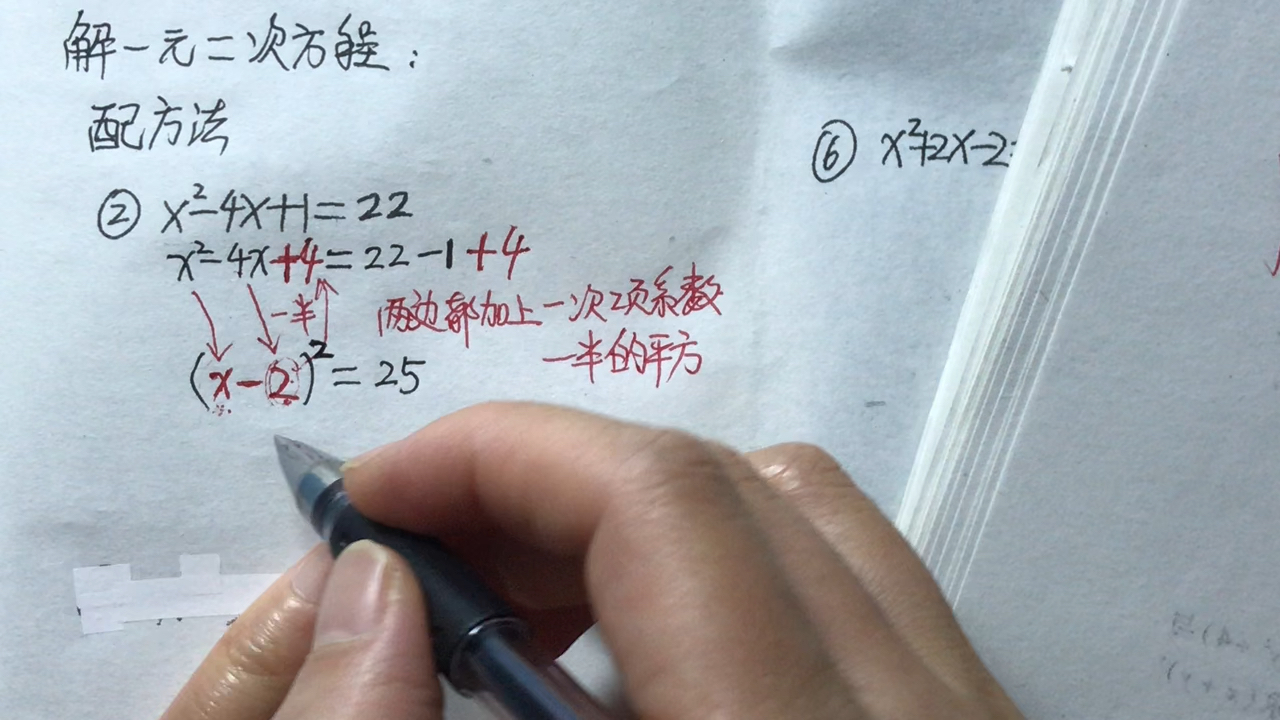 解一元二次方程：
配方法
② x²-4x+1=22
x²-4x+4=22-1+4
一半
两边都加上一次项系数
一半的平方
(x-2)²=25
⑥ x²+2x-2=